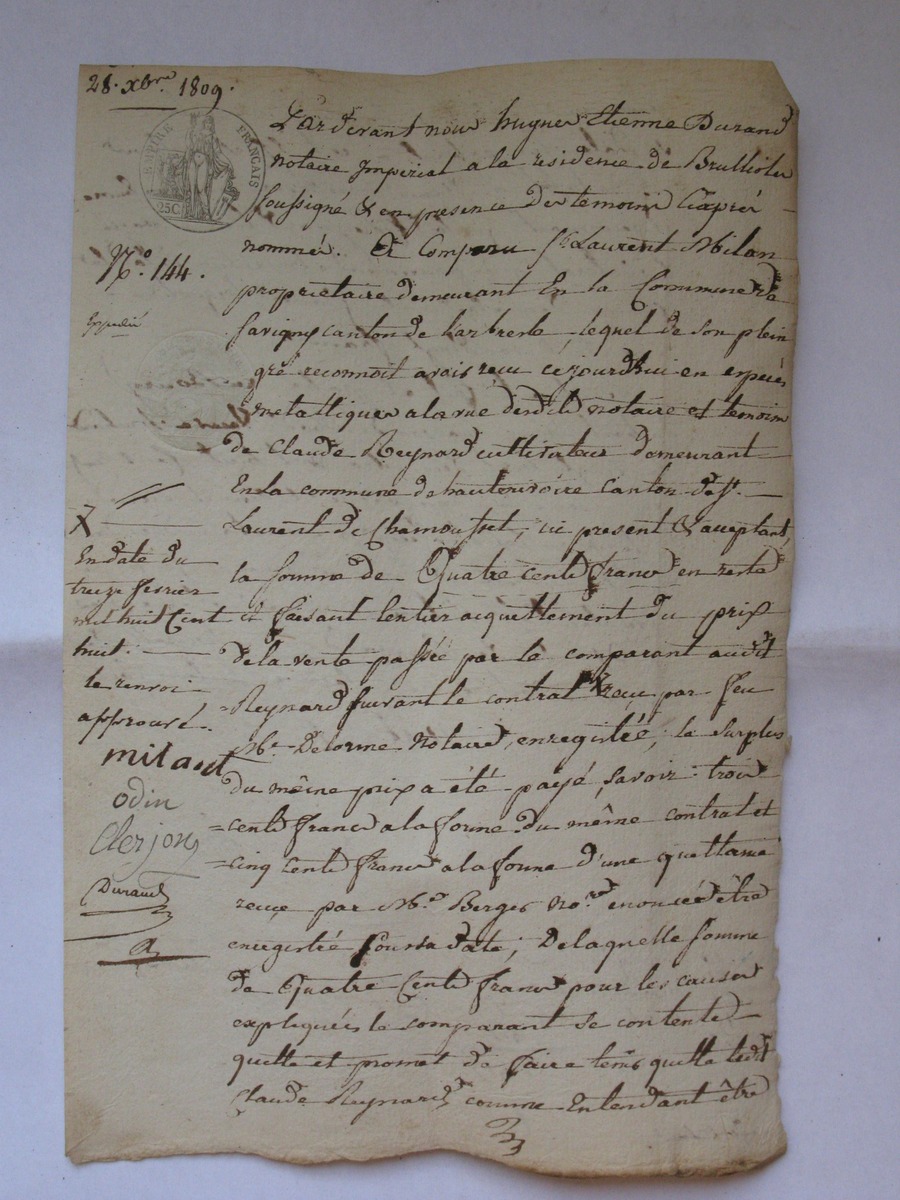 28. xbre. 1809.
EMPIRE FRANÇAIS
25C
N.° 144.
Expedié
Pardevant nous hugues Etienne Durand
notaire Imperial a la residence de Brulliole
soussigné & en presence des temoins Ciaprés
nommés. Et Comparu Sr. Laurent Milan
proprietaire demeurant En la Commune de
Savigny canton de Larbresle, lequel de son plein
gré reconnoit avoir reçu cejourdhui en especes
metalliques a la vue desdits notaire et temoins
de Claude Reynard cultivateur demeurant
En la commune de hauterivoire Canton de St.
Laurent de Chamousset, ici present & acceptant,
la somme de Quatre cents francs en reste
et faisant lentier acquittement du prix
de la vente passée par le comparant audit
Reynard suivant le contrat X reçu par feu
Me. Delorme Notaire, enregistré; le surplus
du même prix a été payé, savoir: trois
=cents francs a la forme du même contrat et
=cinq cents francs a la forme d'une quittance
reçue par Me. Berges Nore. enoncée être
enregistrée sous sa date; De laquelle somme
de Quatre Cents francs pour les causes
expliquées le comparant se contente
quitte et promet de faire tenir quitte ledit
Claude Reynard, comme Entendant être
X
En date du
treize fevrier
mil huit Cent
huit.
le renvoi
approuvé.
milan
odin
Clerjon
Durand